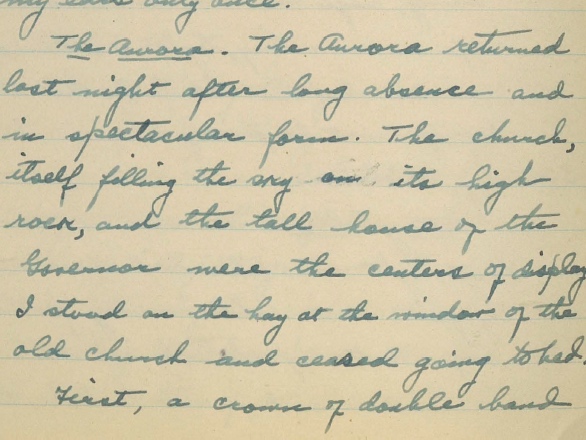 my ears only once.
The Aurora. The Aurora returned
last night after long absence and
in spectacular form. The church,
itself filling the sky on its high
rock, and the tall house of the
Governor were the centers of display
I stood on the hay at the window of the
old church and ceased going to bed.
First, a crown of double band